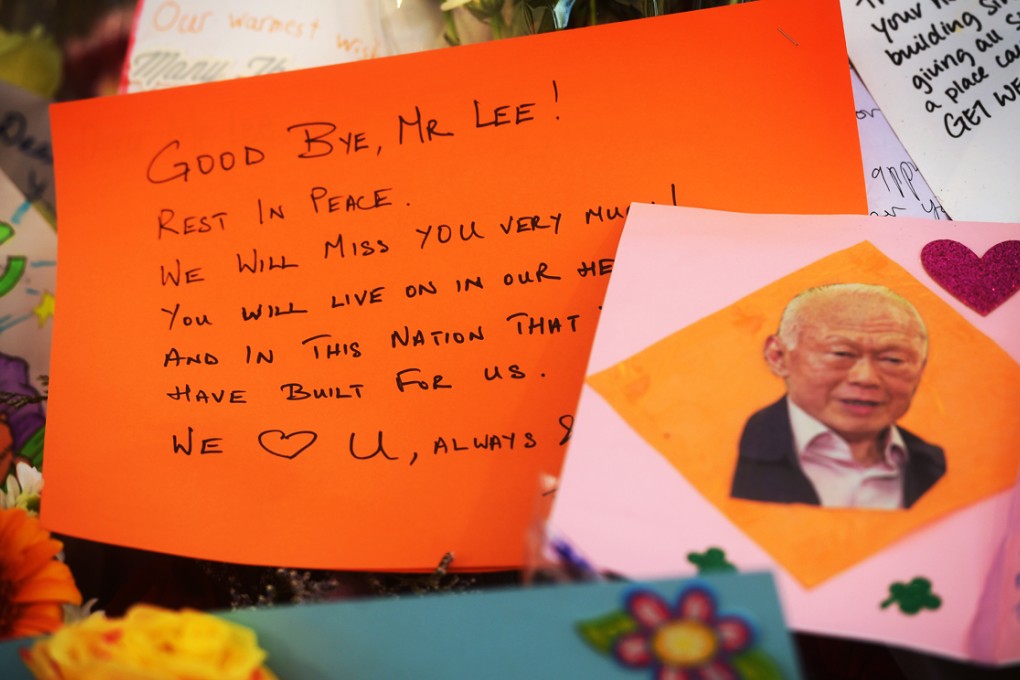 Our warmest wish
Many
GOOD BYE, MR LEE!
REST IN PEACE.
WE WILL MISS YOU VERY
YOU WILL LIVE ON IN OUR
AND IN THIS NATION THAT
HAVE BUILT FOR US.
WE ♡ U, ALWAYS &
your
building
giving all
a place
GET WE